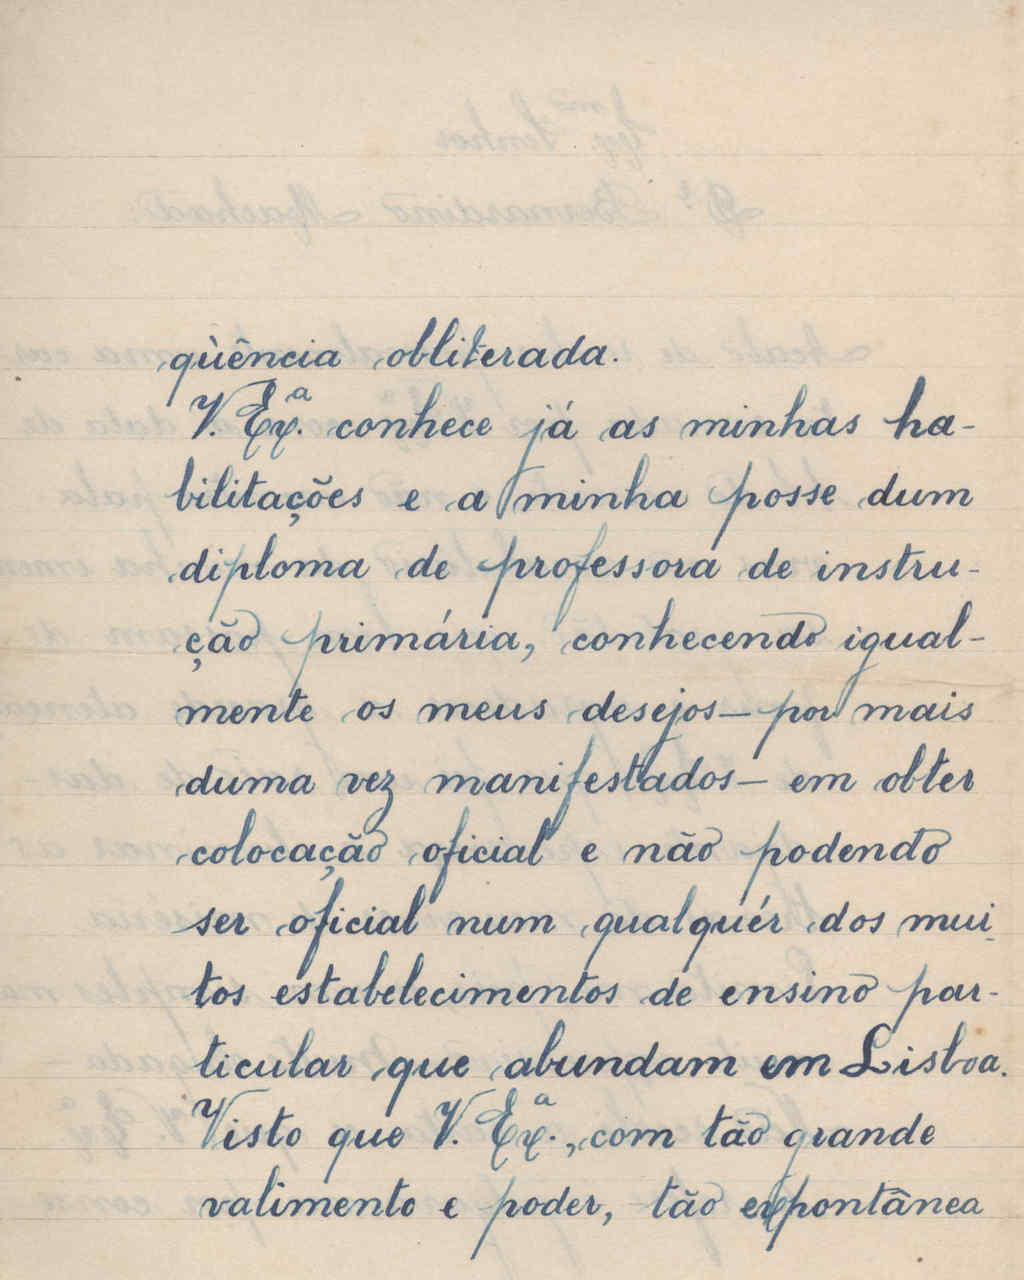 qùência obliterada.
V. Exª. conhece já as minhas ha-
bilitações e a minha posse dum
diploma de professora de instru-
ção primária, conhecendo igual-
mente os meus desejos — por mais
duma vez manifestados — em obter
colocação oficial e não podendo
ser oficial num qualquér dos mui-
tos estabelecimentos de ensino par-
ticular que abundam em Lisboa.
Visto que V. Exª., com tão grande
valimento e poder, tão expontânea